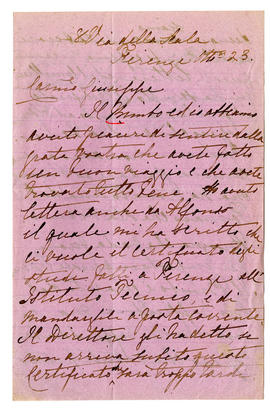 8 Via della Scala
Firenze 23.
Carino Giuseppe
Il Bimbo ed io abbiamo
avuto piacere di sentire dalla
grata vostra, che avete fatto
un buon viaggio e che avete
trovato tutto bene. Ho avuto
lettera anche da Alfonso
il quale mi ha scritto che
ci vuole il certificato degli
studi fatti a Firenze all'
Istituto Tecnico, e di
mandarglielo a posta corrente.
Il Direttore gli ha detto se
non arriva subito questo
Certificato, sarà troppo tardi